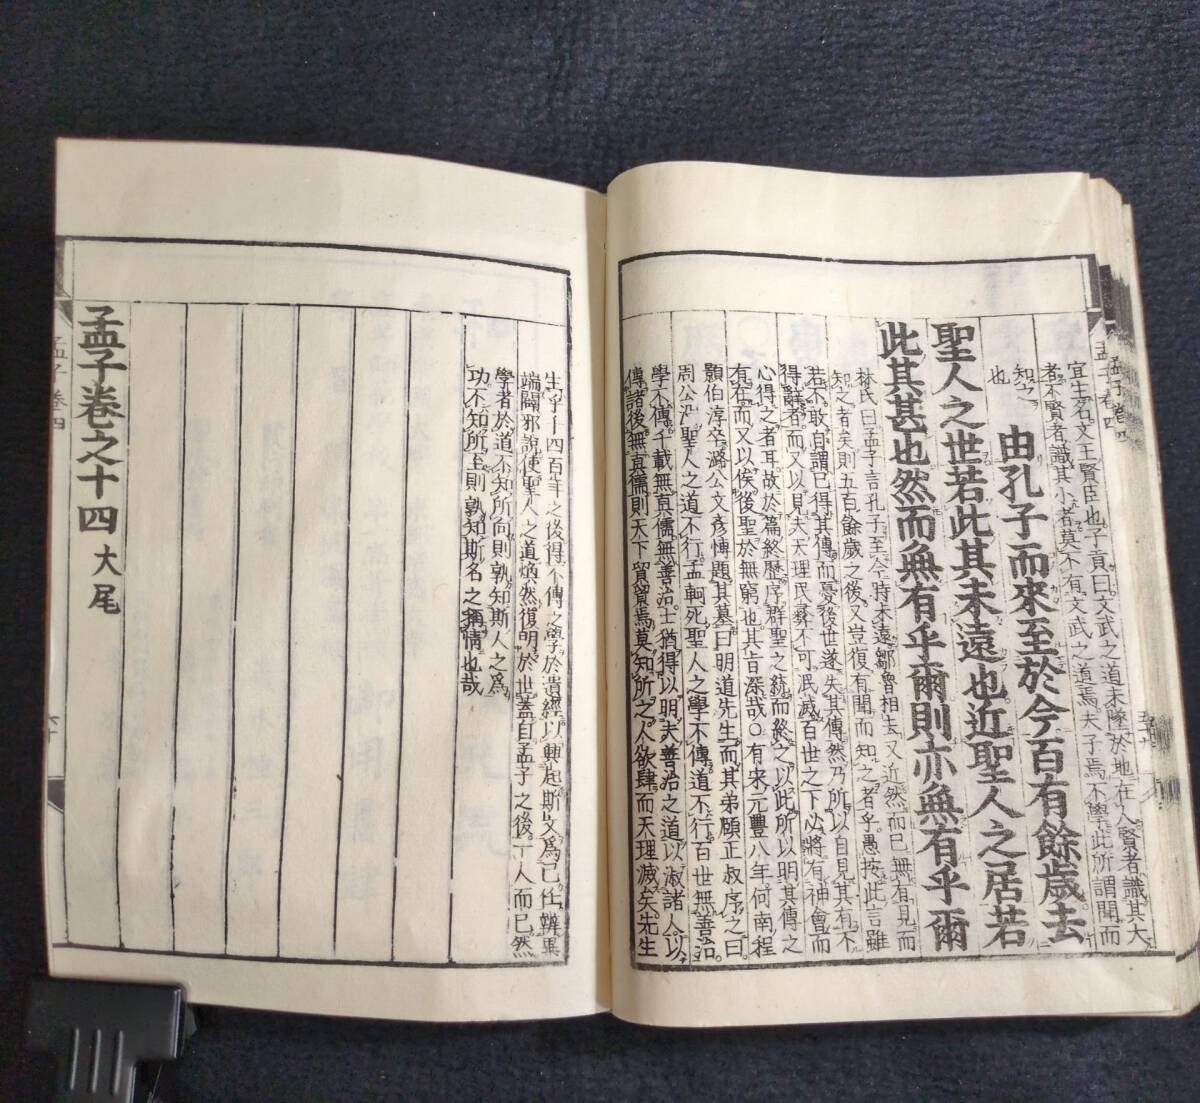 宜生名文王賢臣也子貢曰文武之道未墜於地在人賢者識其大
者不賢者識其小者莫不有文武之道焉夫子焉不學此所謂聞而
知之
也
由孔子而來至於今百有餘歲去
聖人之世若此其未遠也近聖人之居若
此其甚也然而無有乎爾則亦無有乎爾
林氏曰孟子言孔子至今時未遠鄒魯相去又近然而已無有見而
知之者矣則五百餘歲之後又豈復有聞而知之者乎愚按此言雖
若不敢自謂已得其傳而憂後世遂失其傳然乃所以自見其有不
得辭者而又以見夫天理民彝不可泯滅百世之下必將有神會而
心得之者耳故於篇終歷序群聖之統而終之以此所以明其傳之
有在而又以俟後聖於無窮也其旨深哉○有宋元豐八年河南程
顥伯淳卒潞公文彥博題其墓曰明道先生而其弟頤正叔序之曰
周公沒聖人之道不行孟軻死聖人之學不傳道不行百世無善治
學不傳千載無真儒無善治士猶得以明夫善治之道以淑諸人以
傳諸後無真儒則天下貿貿焉莫知所之人欲肆而天理滅矣先生
孟子卷四
五十九
生乎千四百年之後得不傳之學於遺經以興起斯文為己任辨異
端闢邪說使聖人之道煥然復明於世蓋自孟子之後一人而已然
學者於道不知所向則孰知斯人之為
功不知所至則孰知斯名之稱情也哉
孟子卷之十四 大尾
孟子卷四
六十